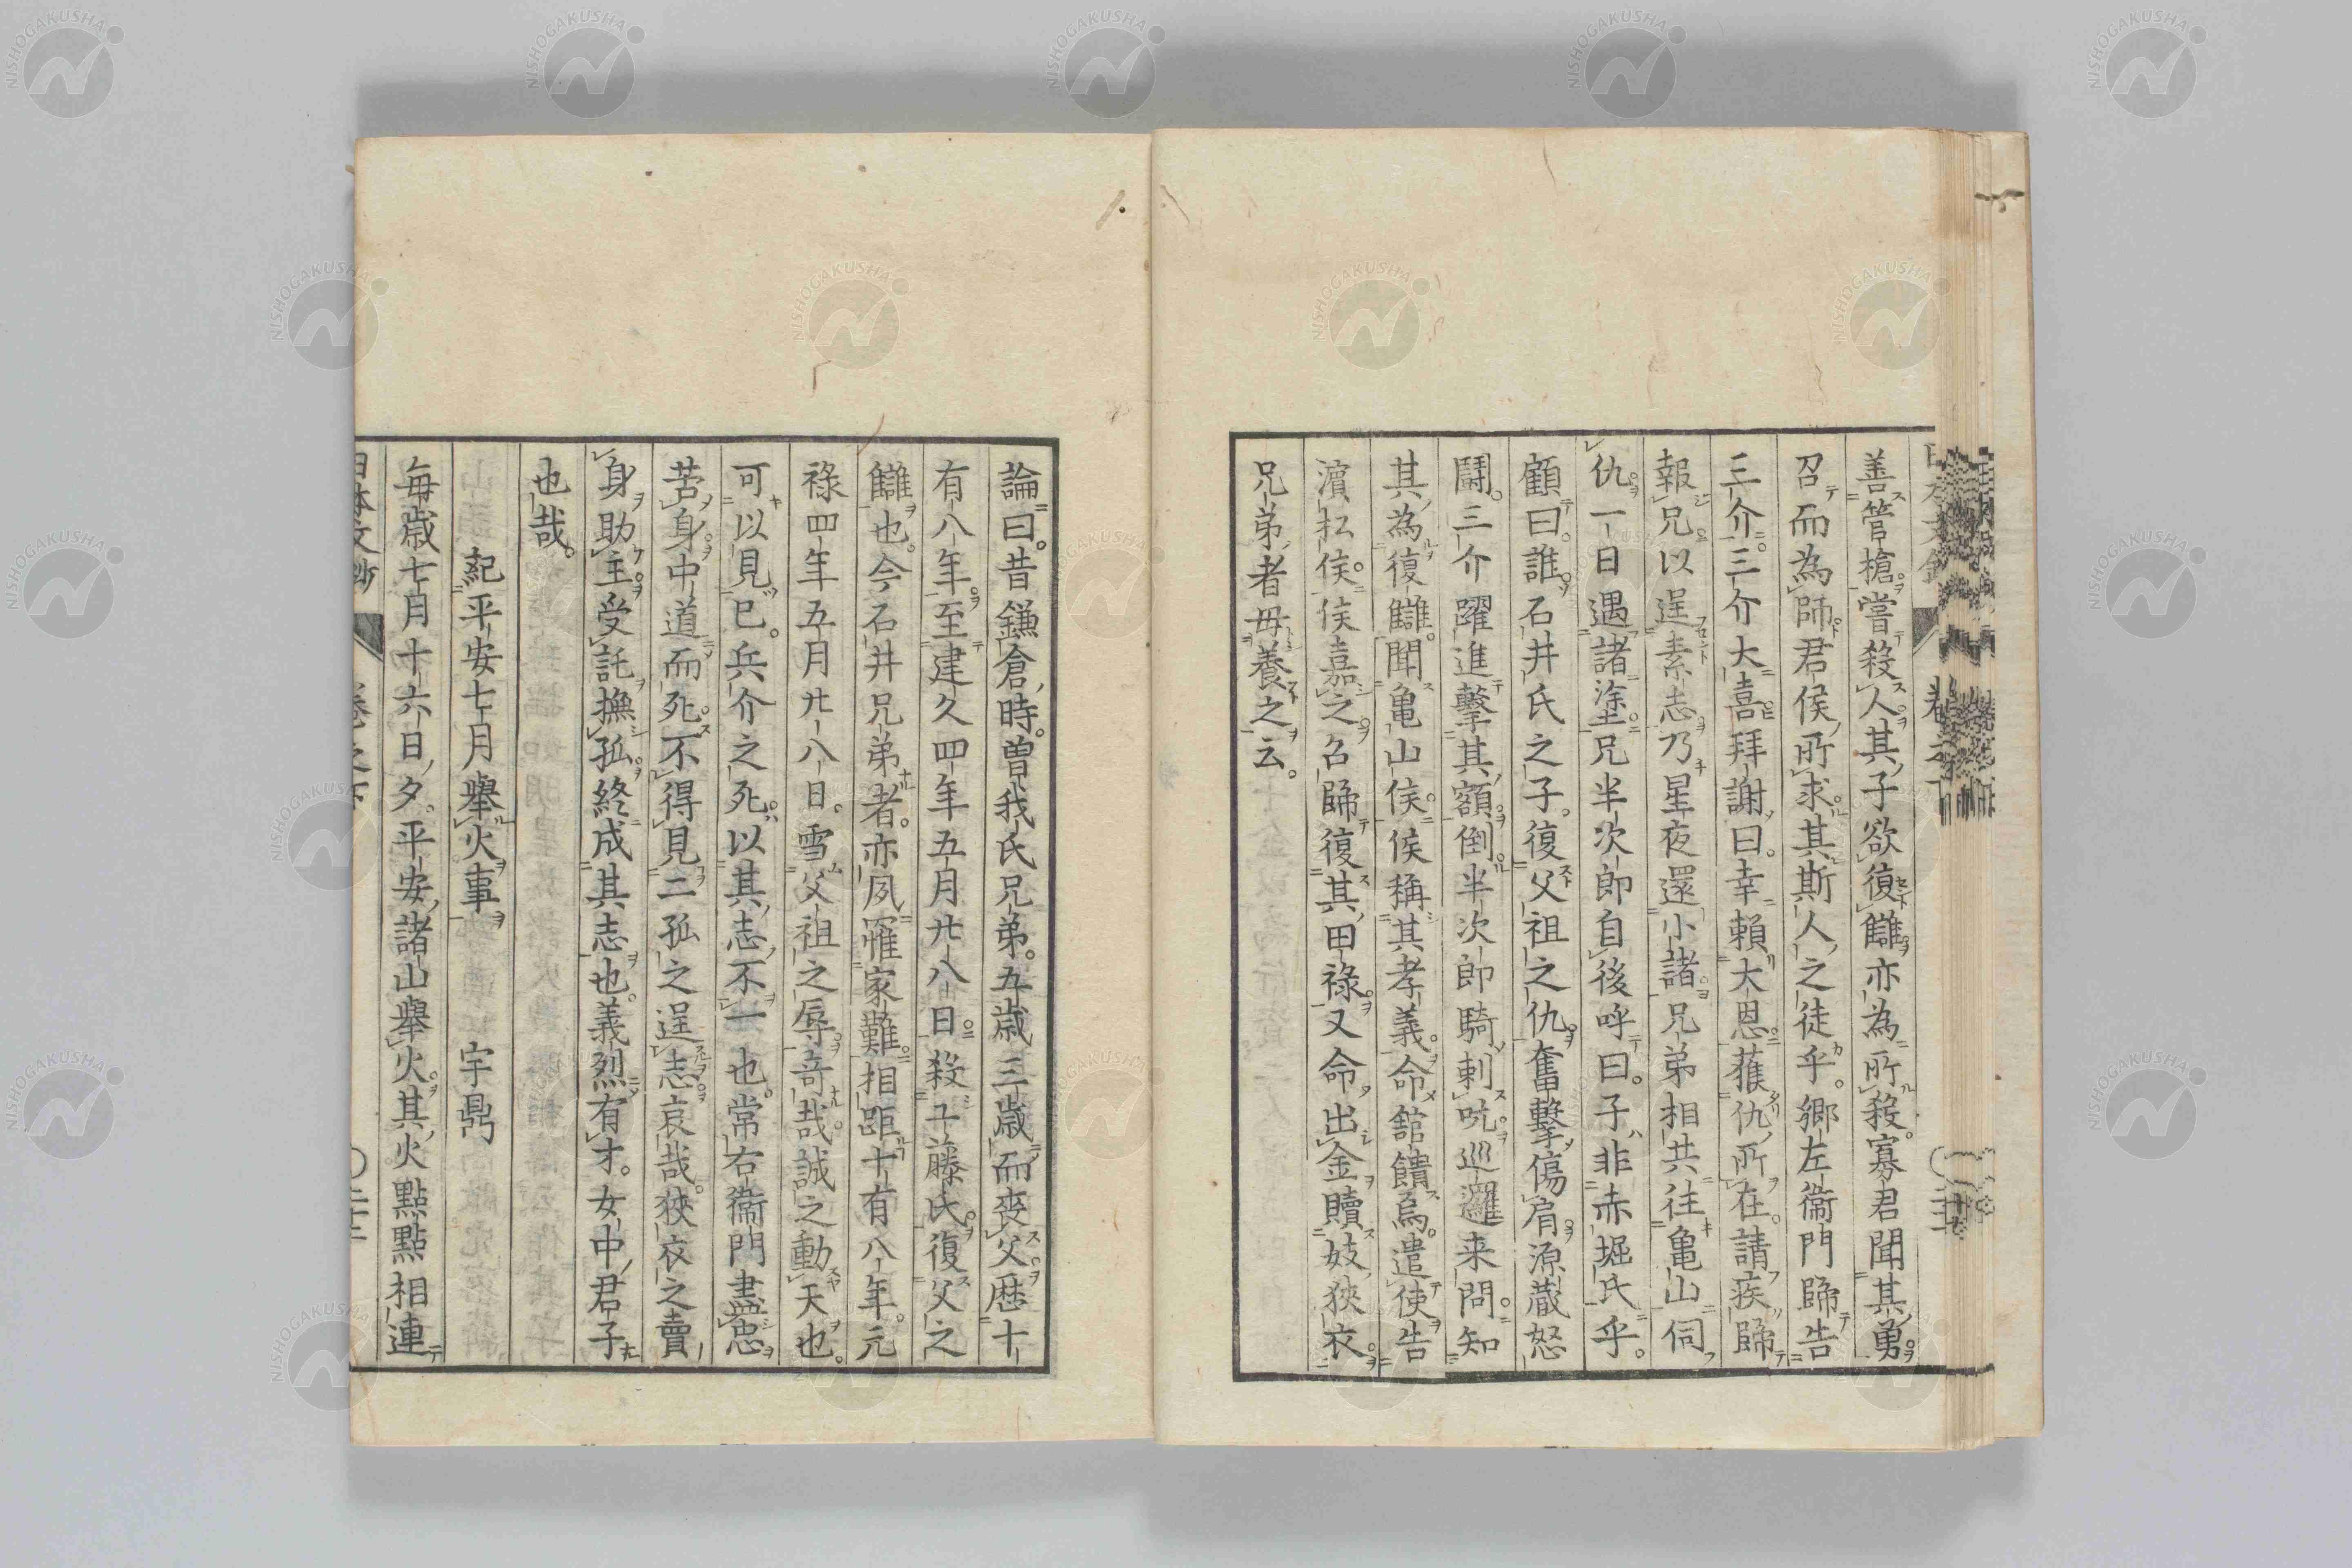 善管槍。嘗殺人其子欲復讎亦為所殺。寡君聞其勇
召而為師君侯所求其斯人之徒乎。鄉左衞門歸告
三介三介大喜拜謝曰。幸賴大恩獲仇所在。請疾歸
報兄以逞素志乃星夜還小諸兄弟相共往亀山伺
仇一日遇諸塗兄半次郎自後呼曰。子非赤堀氏乎。
顧曰。誰。石井氏之子。復父祖之仇。奮擊傷肩源蔵怒
鬪。三介躍進擊其額倒。半次郎騎刺吭。巡邏来問。知
其為復讎。聞亀山侯。侯稱其孝義。命舘饋焉。遣使告
濵松侯。侯嘉之。召歸復其田禄。又命出金贖妓狹衣。
兄弟者毋養之云。
論曰。昔鎌倉時。曽我氏兄弟。五歳三歳而喪父歴十
有八年。至建久四年五月廿八日殺工藤氏。復父之
讎也。今石井兄弟者。亦夙罹家難。相距十有八年。元
祿四年五月廿八日。雪父祖之辱。奇哉。誠之動天也。
可以見已。兵介之死。以其志不一也。常右衞門盡忠
苦身中道而死。不得見二孤之逞志哀哉。狹衣之賣
身助主受託撫孤終成其志也。義烈有才。女中君子
也哉。
紀平安七月舉火事 宇鼎
毎歳七月十六日夕。平安諸山舉火。其火點點相連
日本文鈔 卷之下 〇二十三